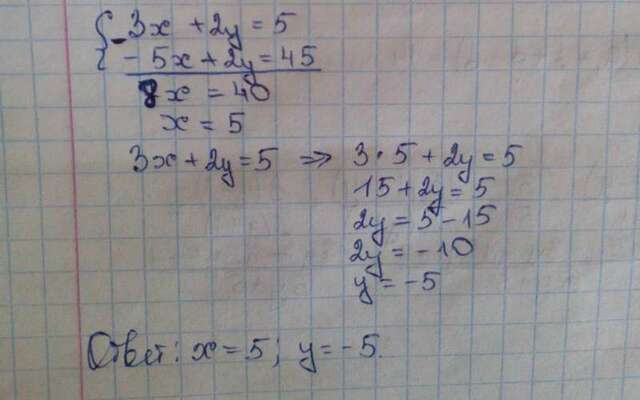 { - 3x + 2y = 5
- 5x + 2y = 45
8x = 40
x = 5
3x + 2y = 5 ⇒ 3 · 5 + 2y = 5
15 + 2y = 5
2y = 5 - 15
2y = - 10
y = - 5
Ответ: x = 5; y = - 5.